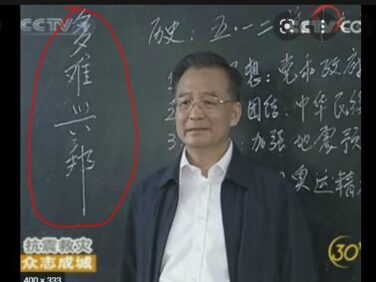 CCTV
CCTV
多难兴邦
历史：五·一二
想：党和政府
团结：中华民族
加强地震预
奥运精
抗震救灾
众志成城
30
400 x 333